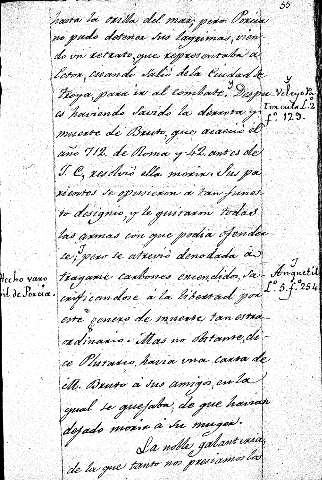 55
hasta la orilla del mar; pero Porcia
no pudo detener sus lagrimas, vien-
do un retrato, que representaba à
Ector, cuando salió de la Ciudad de
Troya, para ir al combate. Despu-
es haviendo savido la derrota, y
muerte de Bruto, que acaeció el
año 712. de Roma y 42. antes de
J. C, resolvió ella morir. Sus pa-
rientes se opusieron a tan funes-
to designio, y le quitaron todas
las armas con que podia ofender
se; pero se atrevió denodada à
tragarse carbones encendidos, sa-
crificandose à la libertad por
este genero de muerte tan estra-
ordinario. Mas no obstante, di-
ce Plutarco, havia una carta de
M. Bruto à sus amigos, en la
qual se quejaba, de que havian
dejado morir à su muger.
La noble galanteria,
de la que tanto nos presiamos la
y
Veleyo Pa-
terculo L.º 2
f.º 123.
Hecho varo
nil de Porcia.
y
Anquetil
L.º 5. f.º 254